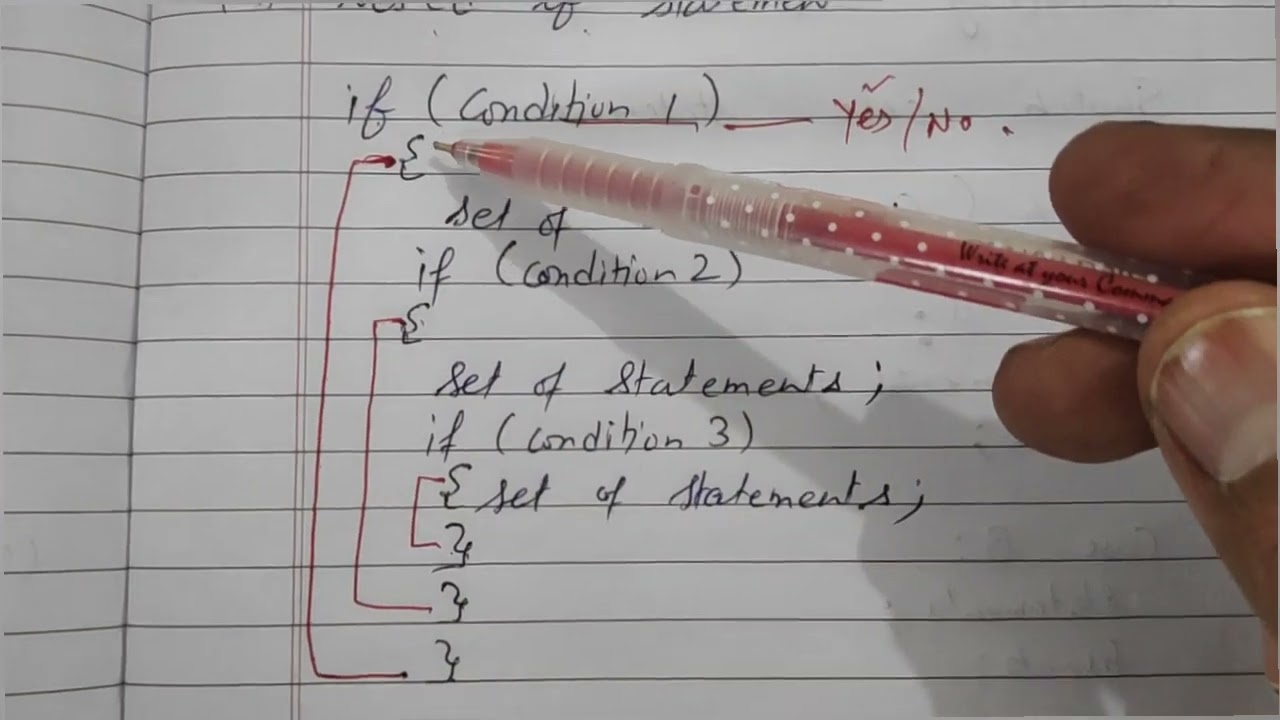 if statement
if (Condition 1) — Yes/No.
{
set of
if (condition 2)
{
set of statements;
if (condition 3)
{ set of statements;
}
}
}
Write at your Comm